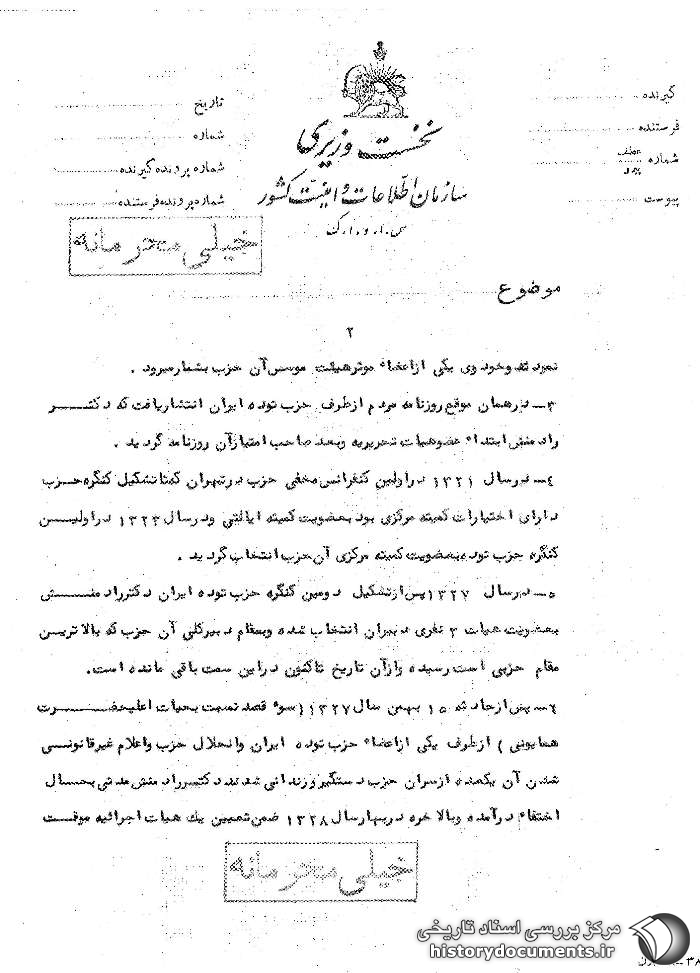 گیرنده
فرستنده
شماره
پیوست
تاریخ
شماره
شماره پرونده گیرنده
شماره پرونده فرستنده
نخست وزیری
سازمان اطلاعات و امنیت کشور
س . ا . و . ا . ک
خیلی محرمانه
موضوع
۲
نمودند وخود وی یکی ازاعضاء موثرهیئت موسس آن حزب بشمارمیرود .
۳ــ درهمان موقع روزنامه مردم ازطرف حزب توده ایران انتشاریافت که دکتـــر
رادمنش ابتداء عضوهیات تحریریه وبعد صاحب امتیازآن روزنامه گردید .
۴ــ درسال ۱۳۲۱ دراولین کنفرانس مخفی حزب درتهران کمتاتشکیل کنگره حزب
دارای اختیارات کمیته مرکزی بود بعضویت کمیته ایالتی ودرسال ۱۳۲۳ دراولیـن
کنگره حزب توده بعضویت کمیته مرکزی آن حزب انتخاب گردید .
۵ــ درسال ۱۳۲۷ پس ازتشکیل دومین کنگره حزب توده ایران دکتررادمنـــش
بعضویت هیات ۳ نفری دبیران انتخاب شده وبمقام دبیرکلی آن حزب که بالاتریـن
مقام حزبی است رسیده وازآن تاریخ تاکنون دراین سمت باقی مانده است.
۶ــ پس ازحادثه ۱۵ بهمن سال ۱۳۲۷ (سوء قصد نسبت بحیات اعلیحضـــرت
همایونی ) ازطرف یکی ازاعضاء حزب توده ایران وانحلال حزب واعلام غیرقانونـی
شدن آن یکعده ازسران حزب دستگیروزندانی شدند دکتـررادمنش مدتی بحـال
اختفاء درآمده وبالاخره دربهارسال ۱۳۲۸ ضمن تعیین یك هیات اجرائیه موقـت
خیلی محرمانه
مرکز بررسی اسناد تاریخی
historydocuments.ir